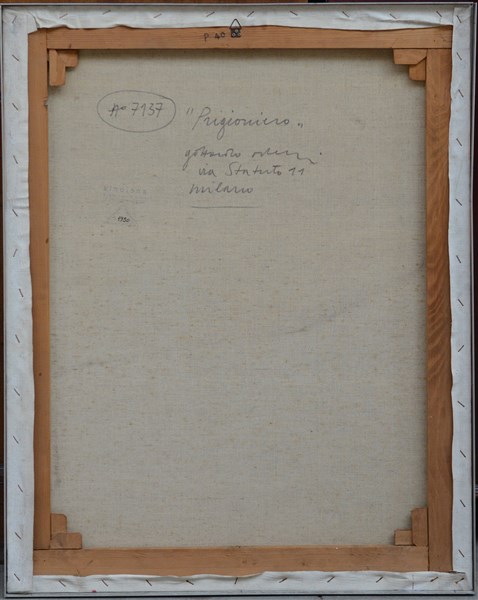 P 40
A° 7137
"Prigioniero"
gottardo ortelli
via Statuto 11
milano